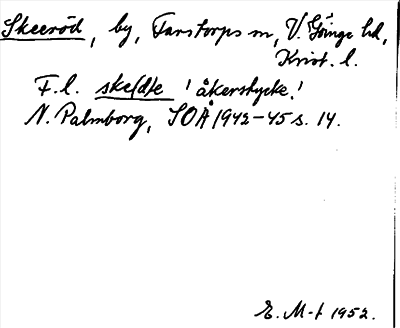 Skeeröd, by, Farstorps sn, V. Göinge hd,
Krist. l.
F.l. ske(d)e 'åkerstycke'.
N. Palmborg, SOÅ 1942-45 s. 14.
E. M-t 1952.